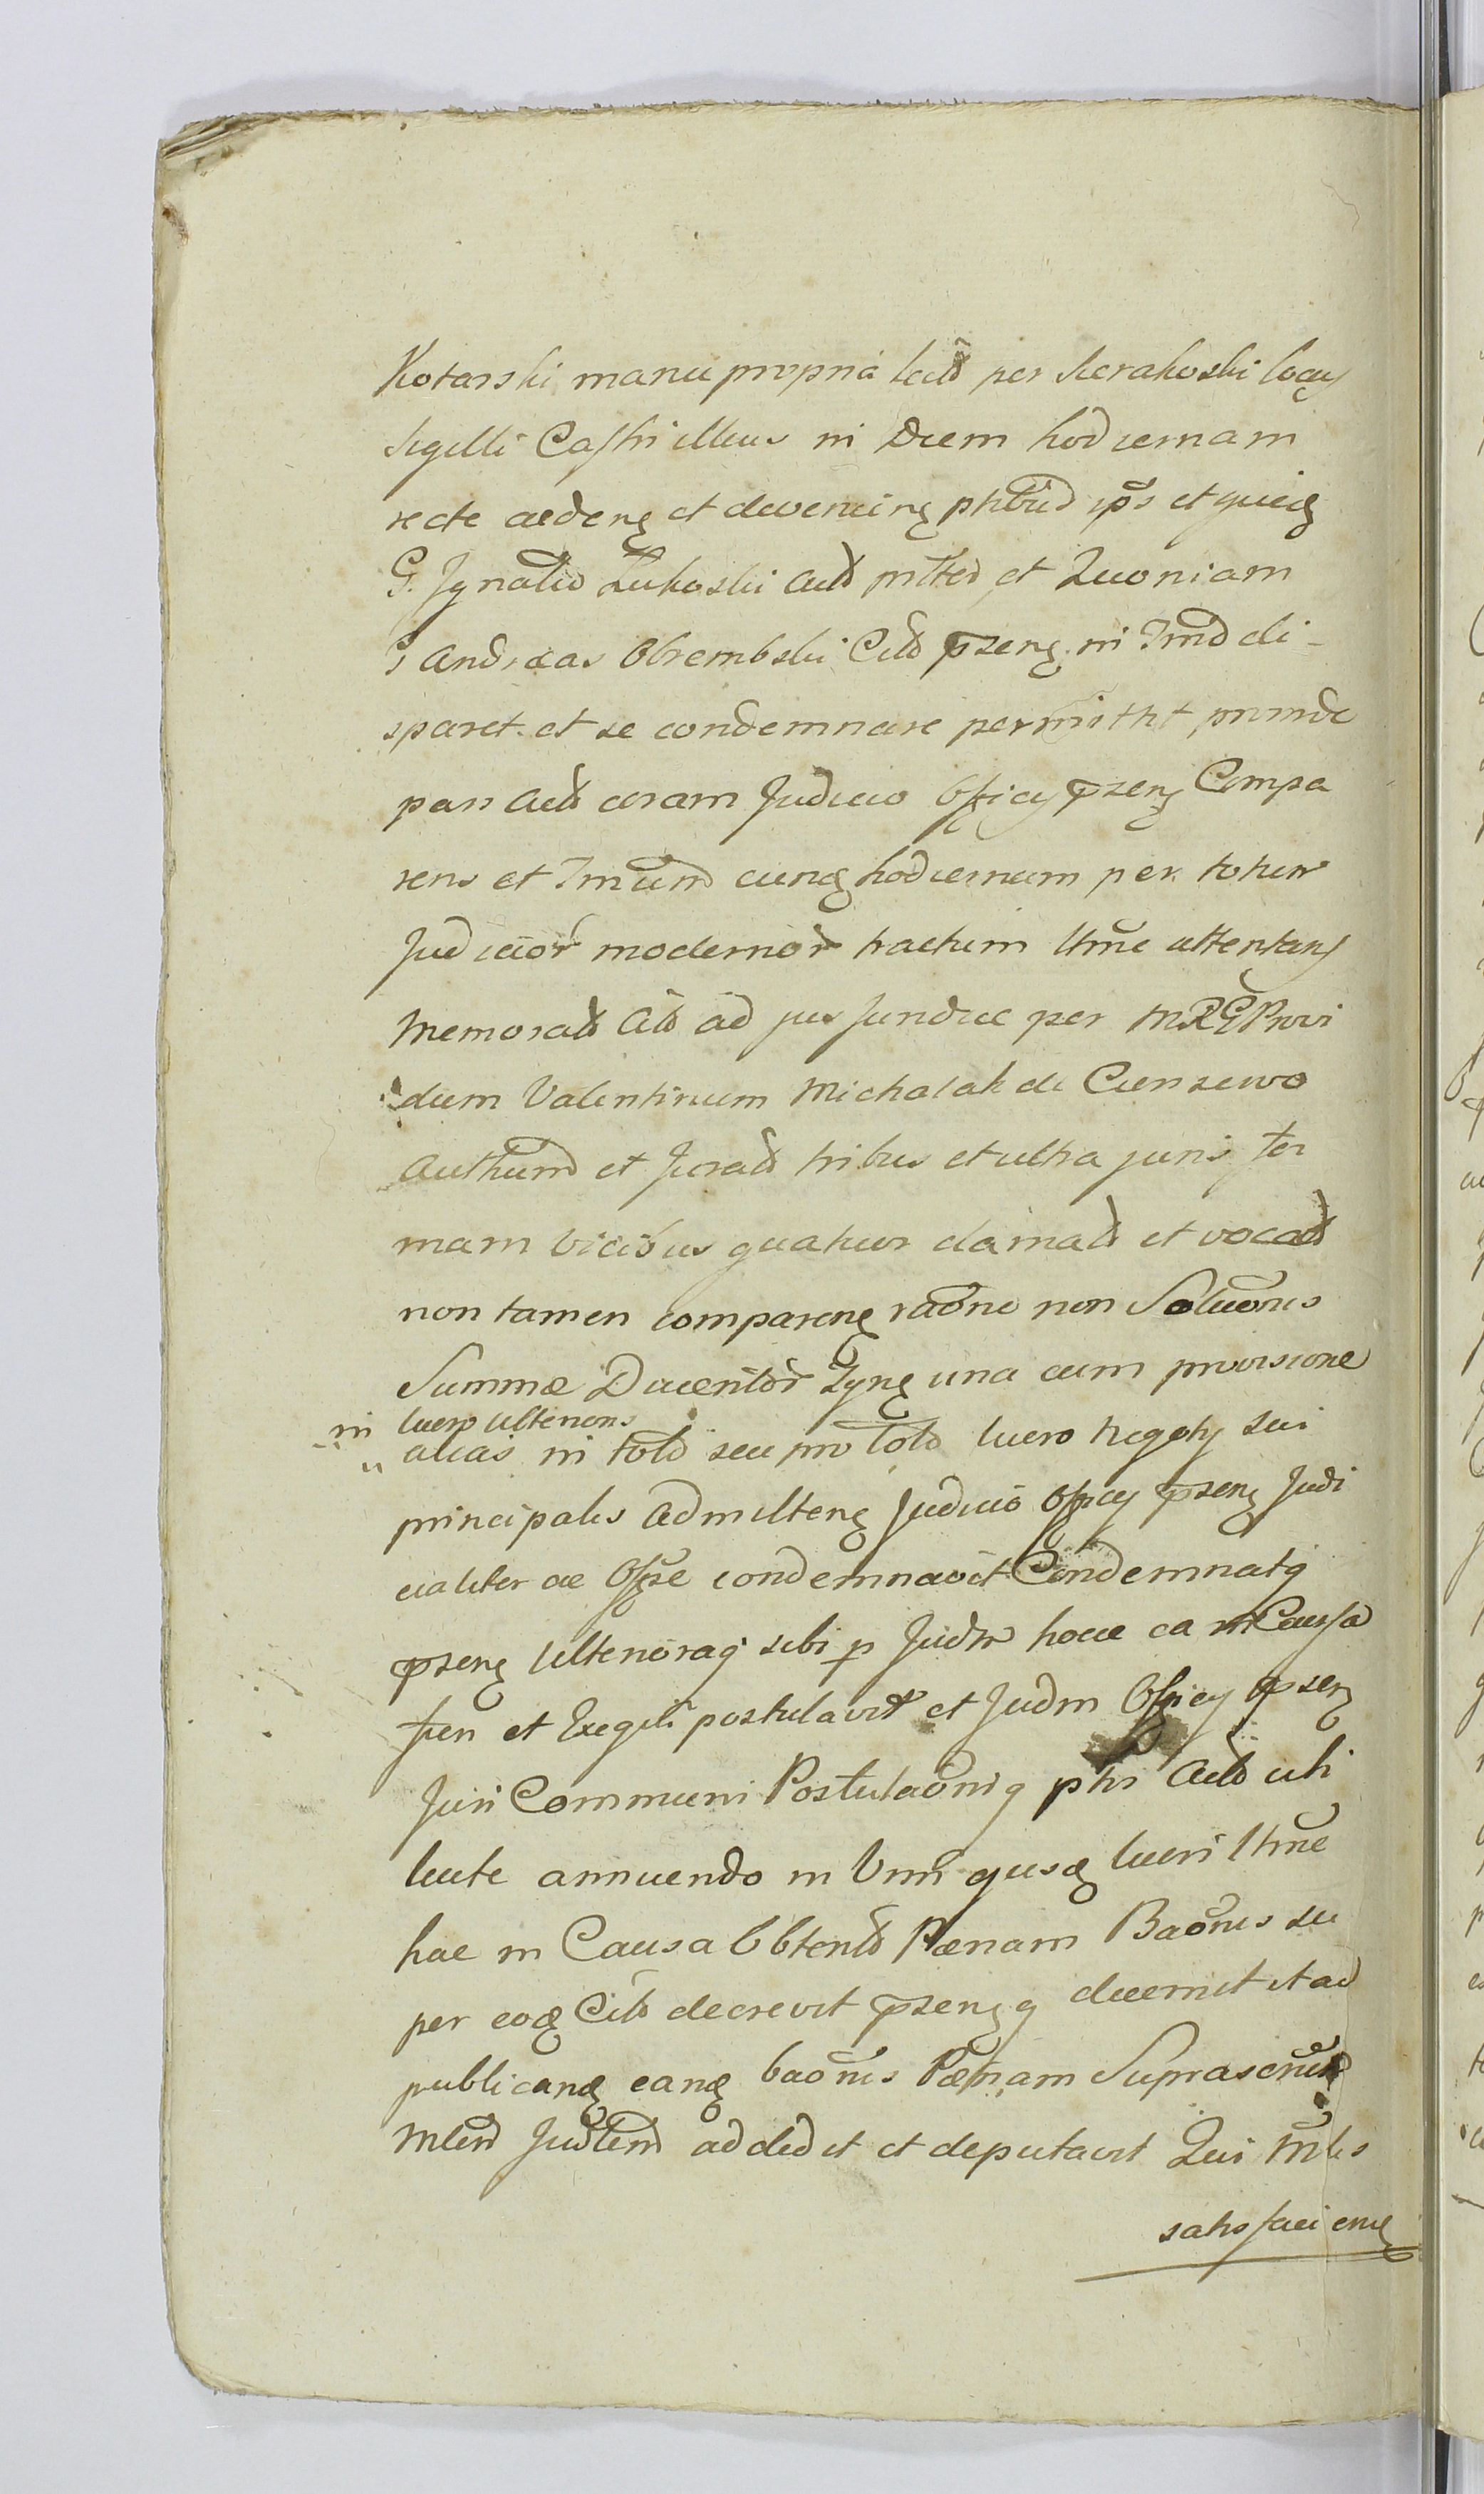 Kotarski manu propria Lectō per Skrakoski Locus
Sigilli Castrēn illius in Diem hodiernam
recte cadeng et deveniēng phtibus ips et quid
G. Ignatio Lukoski Actō et Quoniam
G Andreas Obrembski Citō pseng in Tmno di-
sparet et se condemnare permittit, proinde
pars Actō coram Judicio Officy pseng Compa
rens et Tminum eunq hodiernum per totum
Judicior modernor tractum ltme attentans
Memoratō Citō ad jus Jundice per MRG Provi
dum Valentinum Michalak de
Authum et Juratō tribus et ultra juris for
mam vicibus quatuor clamatō et vocatō
non tamen compareng raōne non Solutionis
Summæ Ducentor Zyng una cum provisione
in lucro ulterioris
alias in totō seu pro totō lucro negoty sui
principalis Admitteng Judicio Officy pseng Judi
cialiter ac Offse condemnavit Condemnatq
pseng ulterioraq sibi p Judm hocce ca in Causa
fieri et Exequi postulavit et Judm Officy pseng
Juri Communi Postulaōniq ptis Actō uti
licite annuendo in Vim cujusq lucri ltme
hac in Causa Obtentō Pænam Baōnis su
per eoq Citō decrevit psengq decernit et ad
publicanq eanq baōnis Pænam Suprascrum
Mlem Judlem addedit et deputavit Qui Mlis
satisfacienq